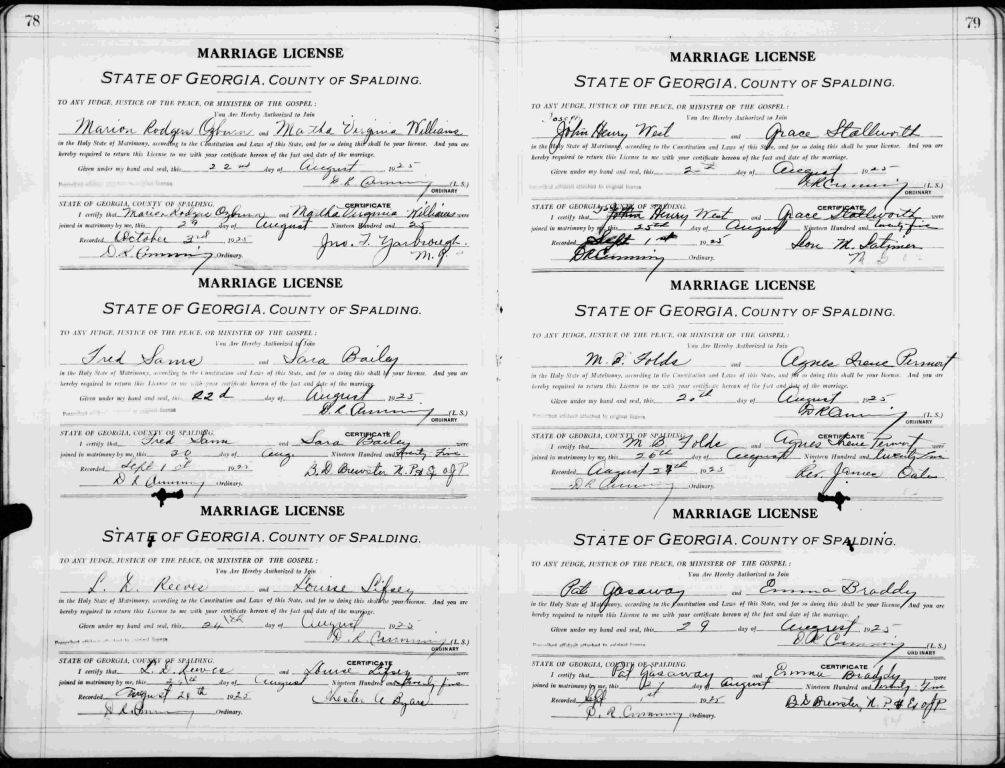 78
MARRIAGE LICENSE
STATE OF GEORGIA, COUNTY OF SPALDING.
TO ANY JUDGE, JUSTICE OF THE PEACE, OR MINISTER OF THE GOSPEL:
You Are Hereby Authorized to Join
Marion Rodgers Ozburn and Martha Virginia Williams
in the Holy State of Matrimony, according to the Constitution and Laws of this State, and for so doing this shall be your license. And you are
hereby required to return this License to me with your certificate hereon of the fact and date of the marriage.
Given under my hand and seal, this 22nd day of August 1925
Prescribed affidavit attached to original license D. R. Cumming (L. S.)
ORDINARY
STATE OF GEORGIA, COUNTY OF SPALDING. CERTIFICATE
I certify that Marion Rodgers Ozburn and Martha Virginia Williams were
joined in matrimony by me, this day of August Nineteen Hundred and 25
Recorded October 3rd 1925 Jno. F. Yarbrough.
D. R. Cumming Ordinary. M. G.
MARRIAGE LICENSE
STATE OF GEORGIA, COUNTY OF SPALDING.
TO ANY JUDGE, JUSTICE OF THE PEACE, OR MINISTER OF THE GOSPEL:
You Are Hereby Authorized to Join
Fred Sams and Sara Bailey
in the Holy State of Matrimony, according to the Constitution and Laws of this State, and for so doing this shall be your license. And you are
hereby required to return this License to me with your certificate hereon of the fact and date of the marriage.
Given under my hand and seal, this 22d day of August 1925
Prescribed affidavit attached to original license D. R. Cumming (L. S.)
ORDINARY
STATE OF GEORGIA, COUNTY OF SPALDING. CERTIFICATE
I certify that Fred Sam and Sara Bailey were
joined in matrimony by me, this day of Aug Nineteen Hundred and Twenty Five
Recorded Sept 1st 1925 B. D. Brewster N. P. & J. of P
D R Cumming Ordinary.
MARRIAGE LICENSE
STATE OF GEORGIA, COUNTY OF SPALDING.
TO ANY JUDGE, JUSTICE OF THE PEACE, OR MINISTER OF THE GOSPEL:
You Are Hereby Authorized to Join
L. D. Reeves and Louise Lifsey
in the Holy State of Matrimony, according to the Constitution and Laws of this State, and for so doing this shall be your license. And you are
hereby required to return this License to me with your certificate hereon of the fact and date of the marriage.
Given under my hand and seal, this 24th day of August 1925
Prescribed affidavit attached to original license D. R. Cumming (L. S.)
ORDINARY
STATE OF GEORGIA, COUNTY OF SPALDING. CERTIFICATE
I certify that L. D. Reeves and Louise Lifsey were
joined in matrimony by me, this day of August Nineteen Hundred and twenty five
Recorded August 29th 1925 Chester A Byars
D. R. Cumming Ordinary.
79
MARRIAGE LICENSE
STATE OF GEORGIA, COUNTY OF SPALDING.
TO ANY JUDGE, JUSTICE OF THE PEACE, OR MINISTER OF THE GOSPEL:
You Are Hereby Authorized to Join
Joseph
John Henry West and Grace Stallworth
in the Holy State of Matrimony, according to the Constitution and Laws of this State, and for so doing this shall be your license. And you are
hereby required to return this License to me with your certificate hereon of the fact and date of the marriage.
Given under my hand and seal, this day of August 1925
Prescribed affidavit attached to original license D. R. Cumming (L. S.)
ORDINARY
STATE OF GEORGIA, COUNTY OF SPALDING. CERTIFICATE
I certify that John Henry West and Grace Stallworth were
joined in matrimony by me, this 25th day of August Nineteen Hundred and twenty five
Recorded Sept 1st 1925 Leon M. Latimer
D R Cumming Ordinary.
MARRIAGE LICENSE
STATE OF GEORGIA, COUNTY OF SPALDING.
TO ANY JUDGE, JUSTICE OF THE PEACE, OR MINISTER OF THE GOSPEL:
You Are Hereby Authorized to Join
M. B. Folds and Agnes Irene
in the Holy State of Matrimony, according to the Constitution and Laws of this State, and for so doing this shall be your license. And you are
hereby required to return this License to me with your certificate hereon of the fact and date of the marriage.
Given under my hand and seal, this day of August 1925
Prescribed affidavit attached to original license D. R. Cumming (L. S.)
ORDINARY
STATE OF GEORGIA, COUNTY OF SPALDING. CERTIFICATE
I certify that M B Folds and Agnes Irene were
joined in matrimony by me, this 26th day of August Nineteen Hundred and twenty five
Recorded August 29th 1925 Rev. James Oates
D R Cumming Ordinary.
MARRIAGE LICENSE
STATE OF GEORGIA, COUNTY OF SPALDING.
TO ANY JUDGE, JUSTICE OF THE PEACE, OR MINISTER OF THE GOSPEL:
You Are Hereby Authorized to Join
Pat Gasaway and Emma Braddy
in the Holy State of Matrimony, according to the Constitution and Laws of this State, and for so doing this shall be your license. And you are
hereby required to return this License to me with your certificate hereon of the fact and date of the marriage.
Given under my hand and seal, this 29 day of August 1925
Prescribed affidavit attached to original license D. R. Cumming (L. S.)
ORDINARY
STATE OF GEORGIA, COUNTY OF SPALDING. CERTIFICATE
I certify that Pat Gasaway and Emma Braddy were
joined in matrimony by me, this day of August Nineteen Hundred and Twenty Five
Recorded Sept 1st 1925 B. D. Brewster, N. P. & Ex of P.
D. R. Cumming Ordinary.